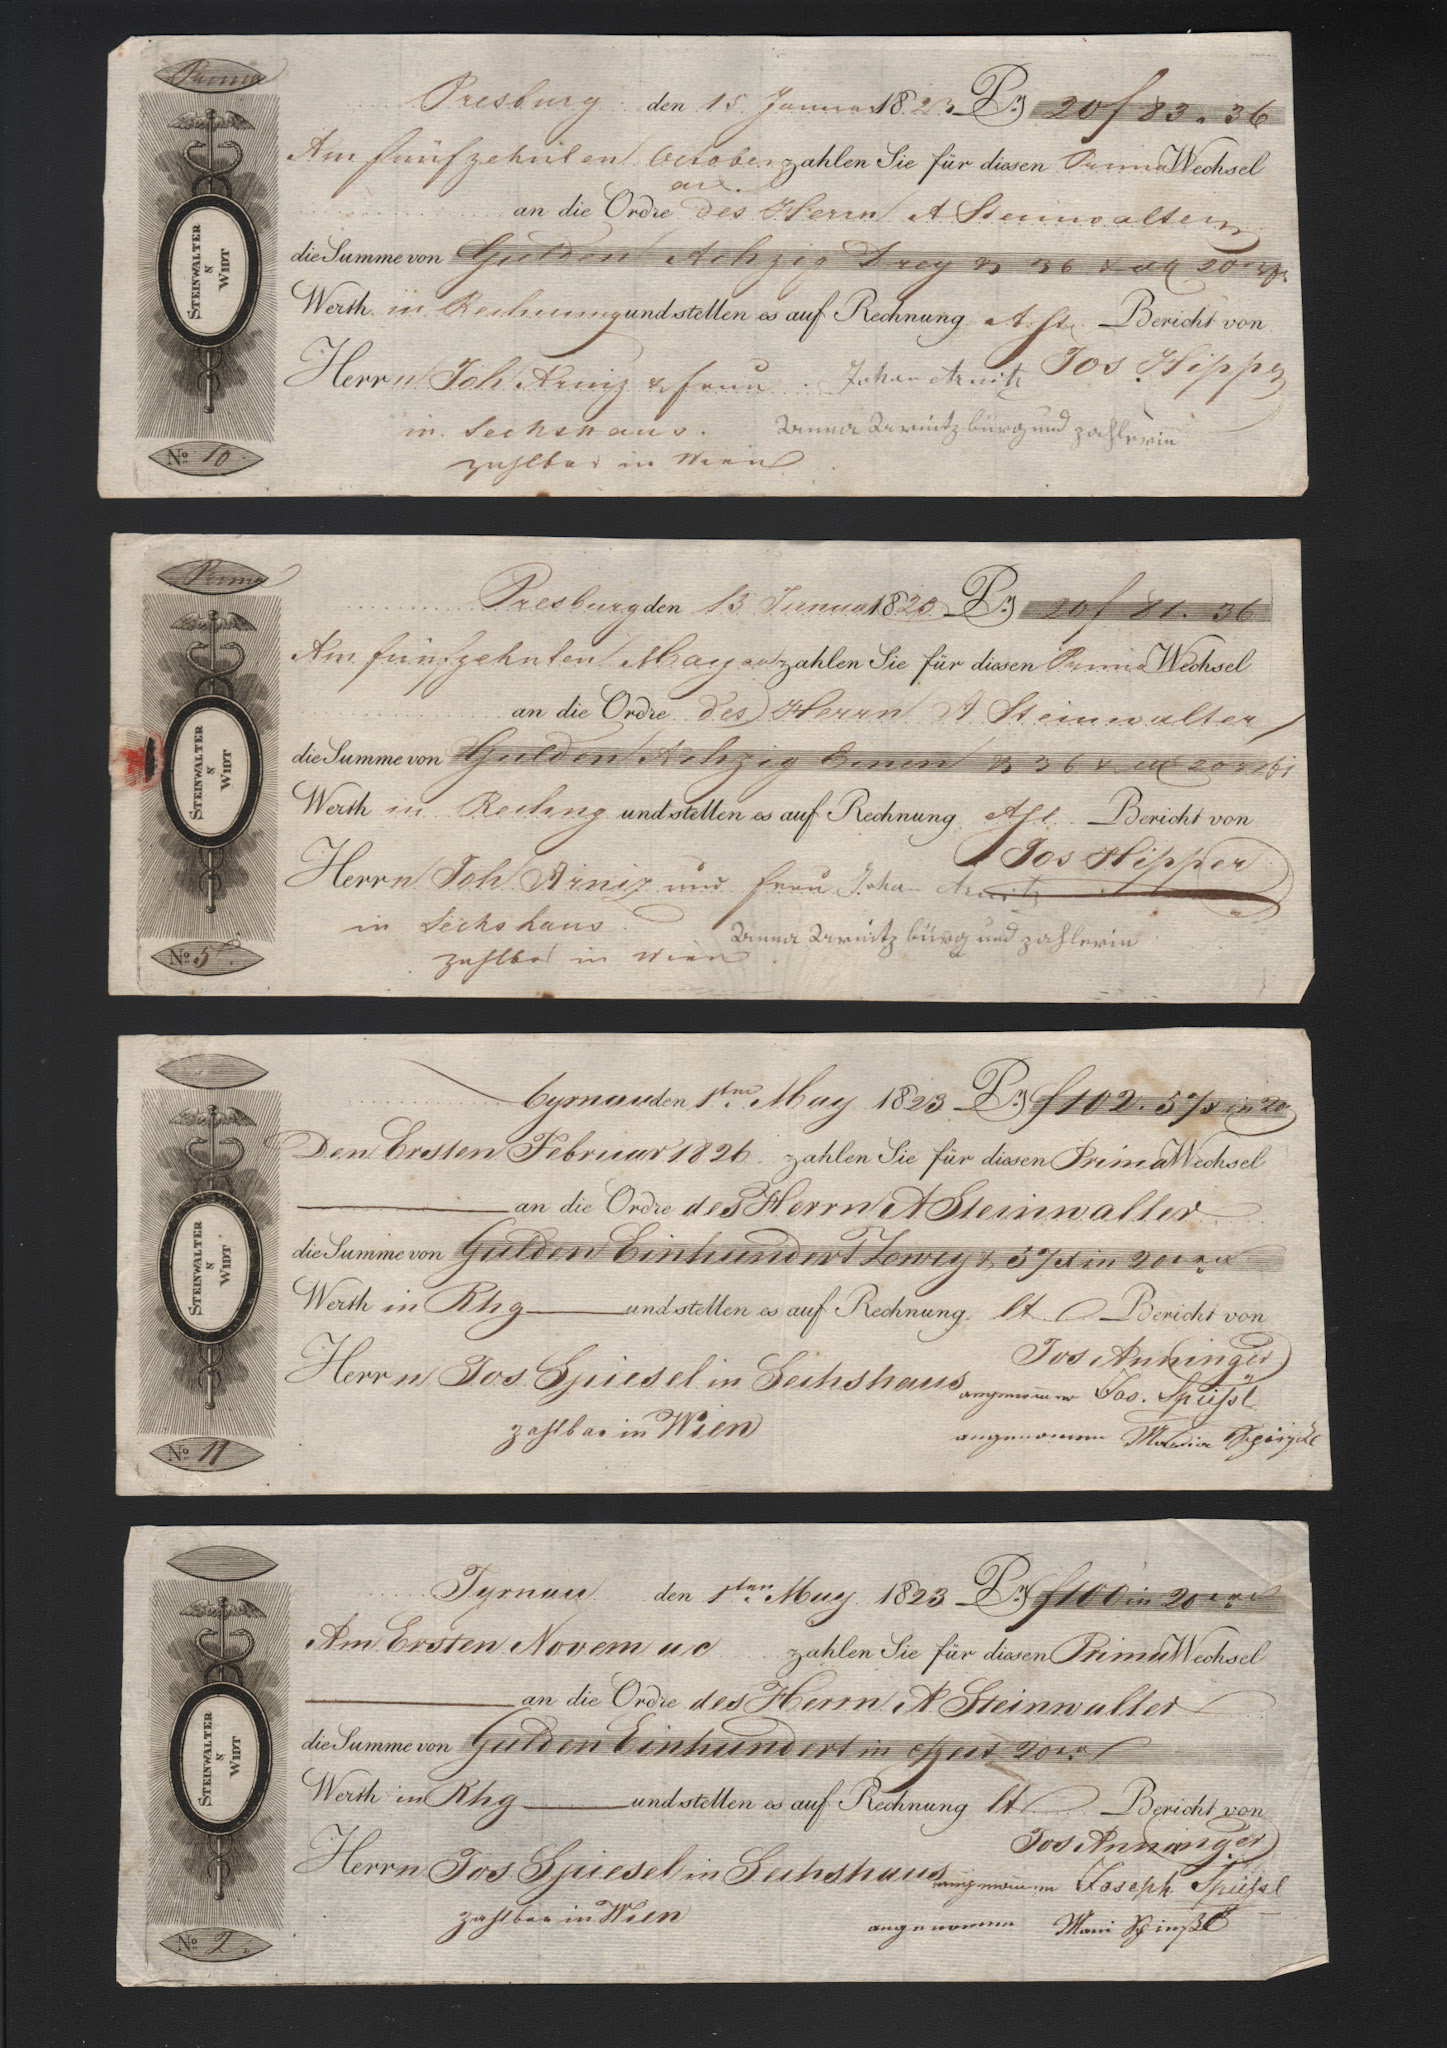 Prima
STEINWALTER & WIDT
Nº 10
Presburg den 15 Januar 1823 Pr 20f 83. 36
Am fünfzehnten October zahlen Sie für diesen Prima Wechsel
an die Ordre des Herrn A Steinwalter
die Summe von Gulden Achzig Drey & 36 x 20
Werth in Rechnung und stellen es auf Rechnung Bericht von
Jos Hipper
Herrn Joh Arniz & frau Johan Arnitz
in Sechshaus.
Anna Arnitz bürg und zahlerin
zahlbar in Wien
Prima
STEINWALTER & WIDT
Nº 5
Presburg den 13 Januar 1823 Pr 20f 81. 36
Am fünfzehnten May zahlen Sie für diesen Prima Wechsel
an die Ordre des Herrn A Steinwalter
die Summe von Gulden Achzig Einen & 36 x 20
Werth in Rechng und stellen es auf Rechnung Bericht von
Jos Hipper
Herrn Joh Arniz und frau Johan Arnitz
in Sechshaus
Anna Arnitz bürg und zahlerin
zahlbar in Wien
STEINWALTER & WIDT
Nº 11
Tyrnau den 1ten May 1823 Pr f 102. 57x in 20
Den Ersten Februar 1826 zahlen Sie für diesen Prima Wechsel
an die Ordre des Herrn A Steinwalter
die Summe von Gulden Einhundert Zwey & 57x in 20
Werth in Rhg und stellen es auf Rechnung lt Bericht von
Jos Anninger
Herrn Jos Spiesel in Sechshaus angenommen Jos. Spießl
zahlbar in Wien
angenommen Maria
STEINWALTER & WIDT
Nº 2
Tyrnau den 1ten May 1823 Pr f 100 in 20
Am Ersten Novem a c zahlen Sie für diesen Prima Wechsel
an die Ordre des Herrn A Steinwalter
die Summe von Gulden Einhundert in 20
Werth in Rhg und stellen es auf Rechnung lt Bericht von
Jos Anninger
Herrn Jos Spiesel in Sechshaus angenommen Joseph Spießl
zahlbar in Wien
angenommen